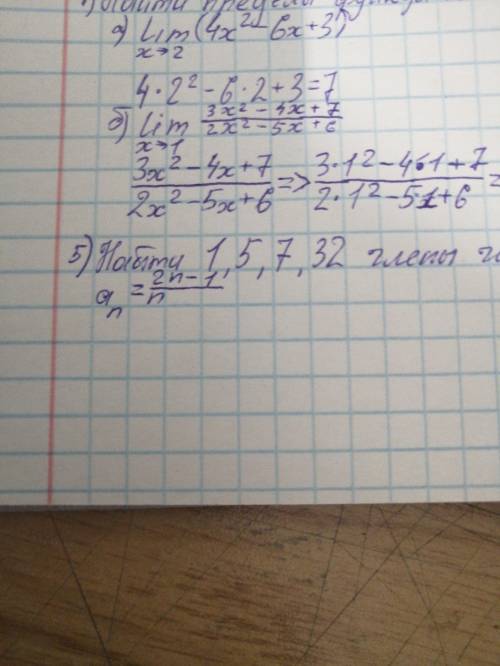 Найти пределы
а) Lim (4x² - 6x + 3)
x→2
4·2² - 6·2 + 3 = 7
б) Lim (3x² - 4x + 7)/(2x² - 5x + 6)
x→1
(3x² - 4x + 7)/(2x² - 5x + 6) => (3·1² - 4·1 + 7)/(2·1² - 5·1 + 6) =
5) Найти 1, 5, 7, 32 члены
aₙ = (2n - 1)/n